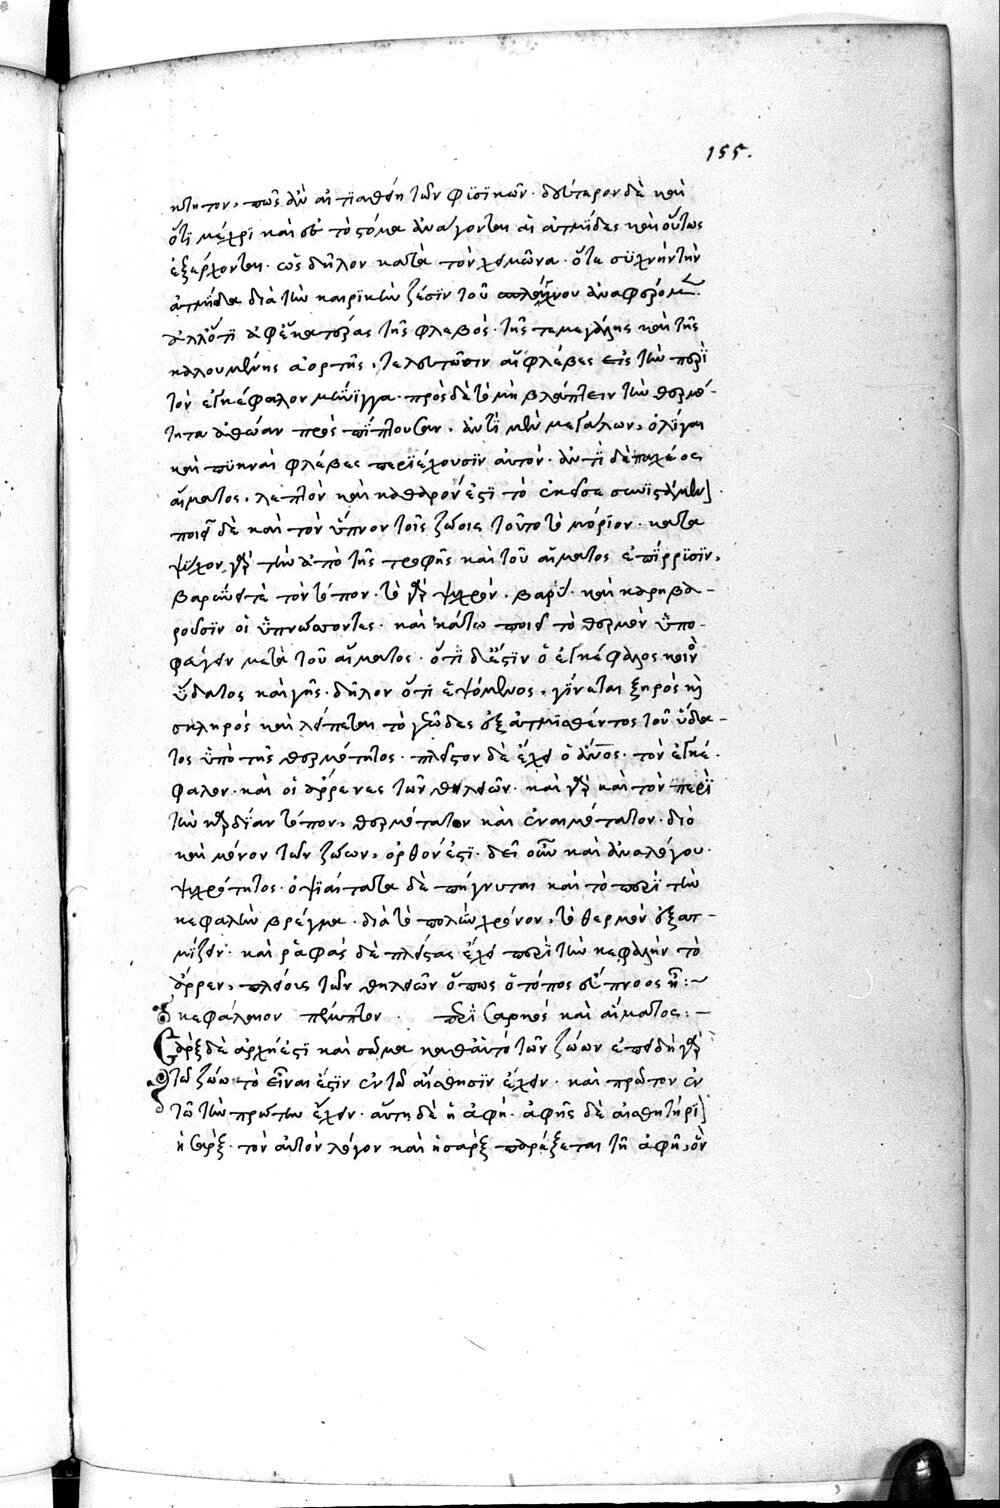 155.
κίνητον, πῶς ἂν αἰτιαθείη τῶν φϋσϊκῶν· δεύτερον δὲ καὶ
ὅτϊ μέχρϊ καὶ εἰς τὸ στόμα ἀνάγονται αἱ ἀτμίδες καὶ οὕτως
ἐξέρχονται. ὡς δῆλον κατὰ τὸν χειμῶνα. ὅτε σϋχνὴν τὴν
ἀτμίδα διὰ τὴν καιρϊκὴν ζέσϊν τοῦ πλεύμονου ἀναφερομεν.
ἀλλ' ὅτϊ ἀφ' ἑκατέρας τῆς φλεβὸς. τῆς τε μεγάλης καὶ τῆς
καλουμένης ἀορτῆς, τελευτῶσιν αἱ φλέβες εἰς τὴν περὶ
τὸν ἐγκέφαλον μήνϊγγα. πρὸς δὲ τὸ μὴ βλάπτειν τὴν θερμό-
τητα
προς
πίπτουσαν, ἀντὶ μὲν μεγάλων, ὀλίγαι
καὶ πϋκναὶ φλέβες περϊέχουσϊν αὐτόν. ἀντϊ δὲ παχέος
αἵματος, λεπτὸν καὶ καθαρόν ἐστϊ τὸ ἐκεῖσε συνϊστάμενον
ποιεῖ δὲ καὶ τὸν ὕπνον τοῖς ζώοις τοῦτο τὸ μόρϊον. κατα
ψῦχον γὰρ τὴν ἀπὸ τῆς τροφῆς καὶ τοῦ αἵματος ἐπίρρϊσϊν,
βαρύνει τε τὸν τόπον. τὸ γὰρ ψυχρόν, βαρύ. καὶ καρηβα-
ροῦσϊν οἱ ὑπνώττοντες. καὶ κάτω ποιεῖ τὸ θερμὸν ὑπο-
φεύγειν μετὰ τοῦ αἵματος. ὅτϊ δέ ἐστϊν ὁ ἐγκέφαλος κοινὸν
ὕδατος καὶ γῆς. δῆλον ὅτϊ ἑψόμενος, γίνεται ξηρὸς καὶ
σκληρὸς καὶ λείπεται τὸ γεῶδες ἐξατμισθέντος τοῦ ὕδα-
τος ὑπὸ τῆς θερμότητος. πλεῖστον δὲ ἔχει ὁ ἄνος. τὸν ἐγκέ-
φαλον. καὶ οἱ ἄρρενες τῶν θηλειῶν. καὶ γὰρ καὶ τὸν περὶ
τὴν καρδίαν τόπον, θερμότατον καὶ ἐναιμότατον. διὸ
καὶ μόνον τῶν ζώων, ὀρθόν ἐστϊ. δεῖ οὖν καὶ ἀναλόγου
ψυχρότητος. ὀψιαίτατα δὲ πήγνυται καὶ τὸ περὶ τὴν
κεφαλὴν βρέγμα. διὰ τὸ πολὺν χρόνον, τὸ θερμὸν ἐξατ-
μίζειν. καὶ ῥαφὰς δὲ πλείστας ἔχει περὶ τὴν κεφαλὴν τὸ
ἄρρεν, πλείους τῶν θηλειῶν ὅπως ὁ τόπος εὔπνοος ᾖ:~
κεφάλαιον πέμπτον. περὶ σαρκὸς καὶ αἵματος:—
Σὰρξ δὲ ἀρχή ἐστϊ καὶ σῶμα καθαὑτὸ τῶν ζώων ἐπειδὴ γὰρ
τῷ ζώω τὸ εἶναι ἐστϊν ἐν τῶ αἴσθησϊν ἔχειν. καὶ πρῶτον ἐν
τῶ τὴν πρώτην ἔχειν. αὕτη δὲ ἡ ἁφή. ἁφῆς δὲ αἰσθητήριον
ἡ σάρξ. τὸν αὐτὸν λόγον καὶ ἡ σὰρξ παρέξεται τῇ ἁφῇ, ὃν